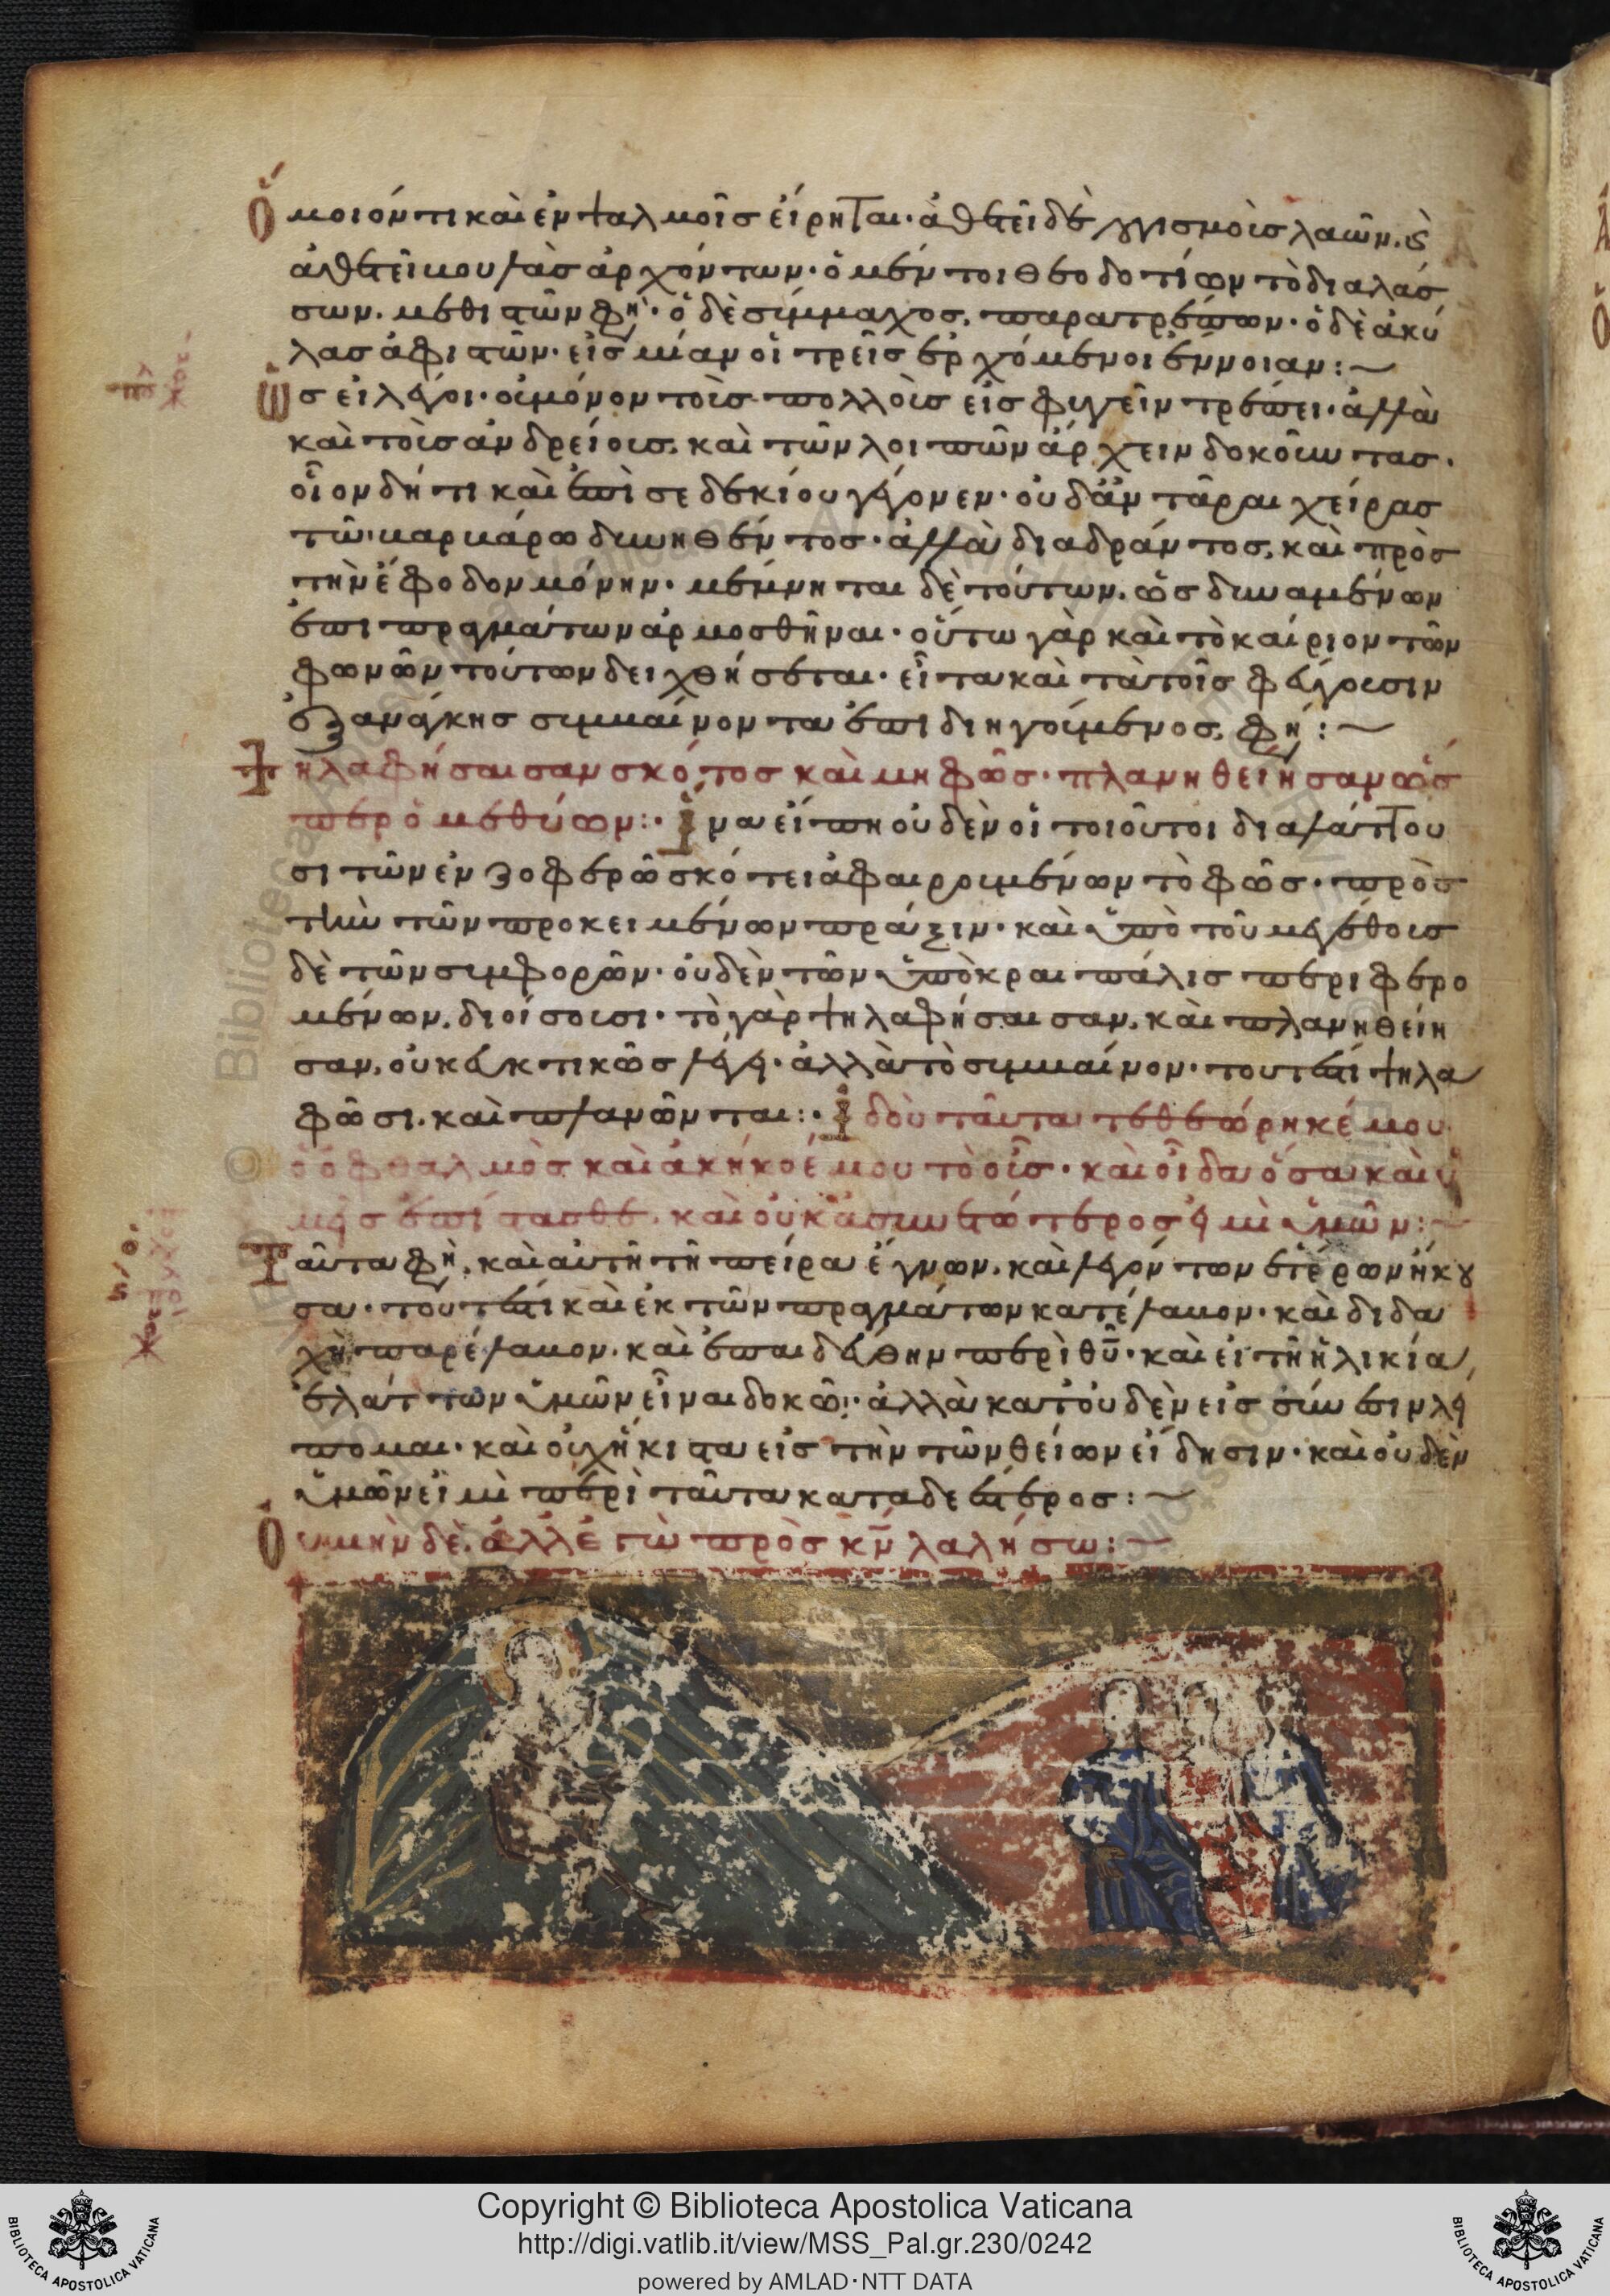 Ὅμοιόν τι καὶ ἐν ψαλμοῖς εἴρηται· ἀθετεῖ δὲ λογισμοὺς λαῶν. καὶ
ἀθετεῖ βουλὰς ἀρχόντων· ὁ μέν τοι θεοδοτίων τὸ διαλάσ
σων. μεθιστῶν φη· ὁ δὲ σύμμαχος. παρατρέπων· ὁ δὲ ἀκύ
λας ἀφιστῶν· εἰς μίαν οἱ τρεῖς ἐρχόμενοι ἔννοιαν:~
Ὡσεὶ λέγοι· οὐ μόνον τοὺς πολλοὺς εἰς φυγεῖν τρέπει· ἀλλὰ
καὶ τοὺς ἀνδρείους. καὶ τῶν λοιπῶν ἄρχειν δοκοῦντας.
οἷον δή τι καὶ ἐπὶ σεδεκίου γέγονεν· οὐδ' ἂν τᾶραι χεῖρας
τῶ βαρβάρω δυνηθέντος· ἀλλὰ διαδράντος. καὶ πρὸς
τὴν ἔφοδον μόνην· μέμνηται δὲ τούτων. ὡς δυναμένων
ἐπι πραγμάτων ἁρμοσθῆναι· οὕτω γὰρ καὶ τὸ καίριον τῶν
φωνῶν τούτων δειχθήσεται· εἶτα καὶ τὰ τοῖς φεύγουσιν
ἐξ ἀνάγκης συμβαίνοντα ἐπιδιηγούμενος. φη:~
Ψηλαφήσαισαν σκότος καὶ μὴ φῶς· πλανηθείησαν ὥσ
περ ὁ μεθύων:· Ἵνα εἴπη οὐδὲν οἱ τοιοῦτοι διαλάττου
σι τῶν ἐν ζοφερῶ σκότει ἀφαιρουμένων τὸ φῶς· πρὸς
τὴν τῶν προκειμένων πρᾶξιν· καὶ ὑπὸ τοῦ μεγέθους
δὲ τῶν συμφορῶν· οὐδὲν τῶν ὑπὸ κραιπάλης περιφερο
μένων. διοίσουσι· τὸ γὰρ ψηλαφήσαισαν. καὶ πλανηθείη
σαν. οὐκ εὐκτικῶς λέγει· ἀλλὰ τὸ συμβαῖνον· τουτέστι ψηλα
φῶσι. καὶ πλανῶνται:· Ἰδοὺ ταῦτα τεθεώρηκέ μου
ὁ ὀφθαλμὸς καὶ ἀκήκοέ μου τὸ οὖς· καὶ οἶδα ὅσα καὶ ὑ
μεῖς ἐπίστασθε. καὶ οὐκ ἀσυνετώτερος εἰμι ὑμῶν:~
Ταῦτα φη. καὶ αὐτῆ τῆ πείρα ἔγνων. καὶ λεγόντων ἑτέρων ἤκου
σα· τουτέστι καὶ ἐκ τῶν πραγμάτων κατέλαβον· καὶ διδα
χῆ παρέλαβον. καὶ ἐπαιδεύθην περὶ θυ· καὶ εἰ τῆ ἡλικία
ἐλάττων ὑμῶν εἶναι δοκῶ· ἀλλὰ κατ' οὐδὲν εἰς σύνεσιν λεί
πομαι· καὶ οὐχ ἥκιστα εἰς τὴν τῶν θείων εἴδησιν· καὶ οὐδὲν
ὑμῶν εἰμὶ περὶ ταῦτα καταδεέστερος:~
Οὐ μὴν δὲ. ἀλλ' ἐγὼ πρὸς κν λαλήσω:~
Copyright © Biblioteca Apostolica Vaticana
http://digi.vatlib.it/view/MSS_Pal.gr.230/0242
powered by AMLAD·NTT DATA
BIBLIOTECA APOSTOLICA VATICANA
BIBLIOTECA APOSTOLICA VATICANA